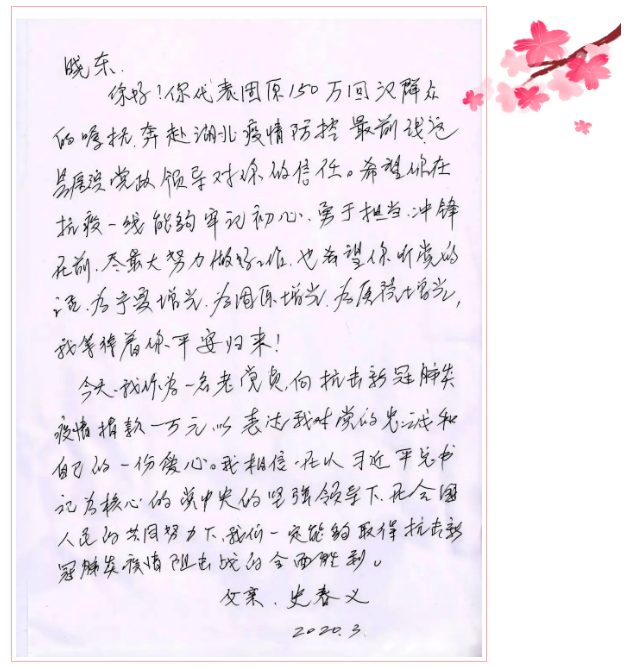 晓东.
你好!你代表固原150万回汉群众
的嘱托,奔赴湖北疫情防控最前线,这
是医院党政领导对你的信任。希望你在
抗疫一线能够牢记初心、勇于担当、冲锋
在前、尽最大努力做好工作.也希望你听党的
话,为宁夏增光、为固原增光、为医院增光,
我等待着你平安归来!
今天,我作为一名老党员,向抗击新冠肺炎
疫情捐款一万元,以表达我对党的忠诚和
自己的一份爱心。我相信,在以习近平总书
记为核心的党中央的坚强领导下,在全国
人民的共同努力下,我们一定能够取得抗击新
冠肺炎疫情阻击战的全面胜利。
父亲、史春义
2020.3.